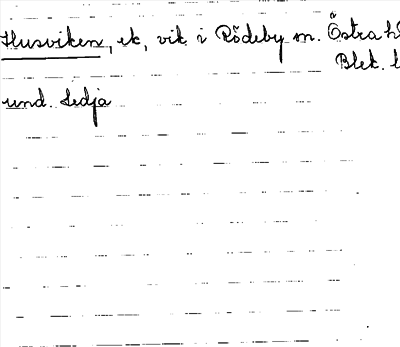 Husviken, ek, vik i Rödeby sn. Östra h
Blek. l
und. Sedja